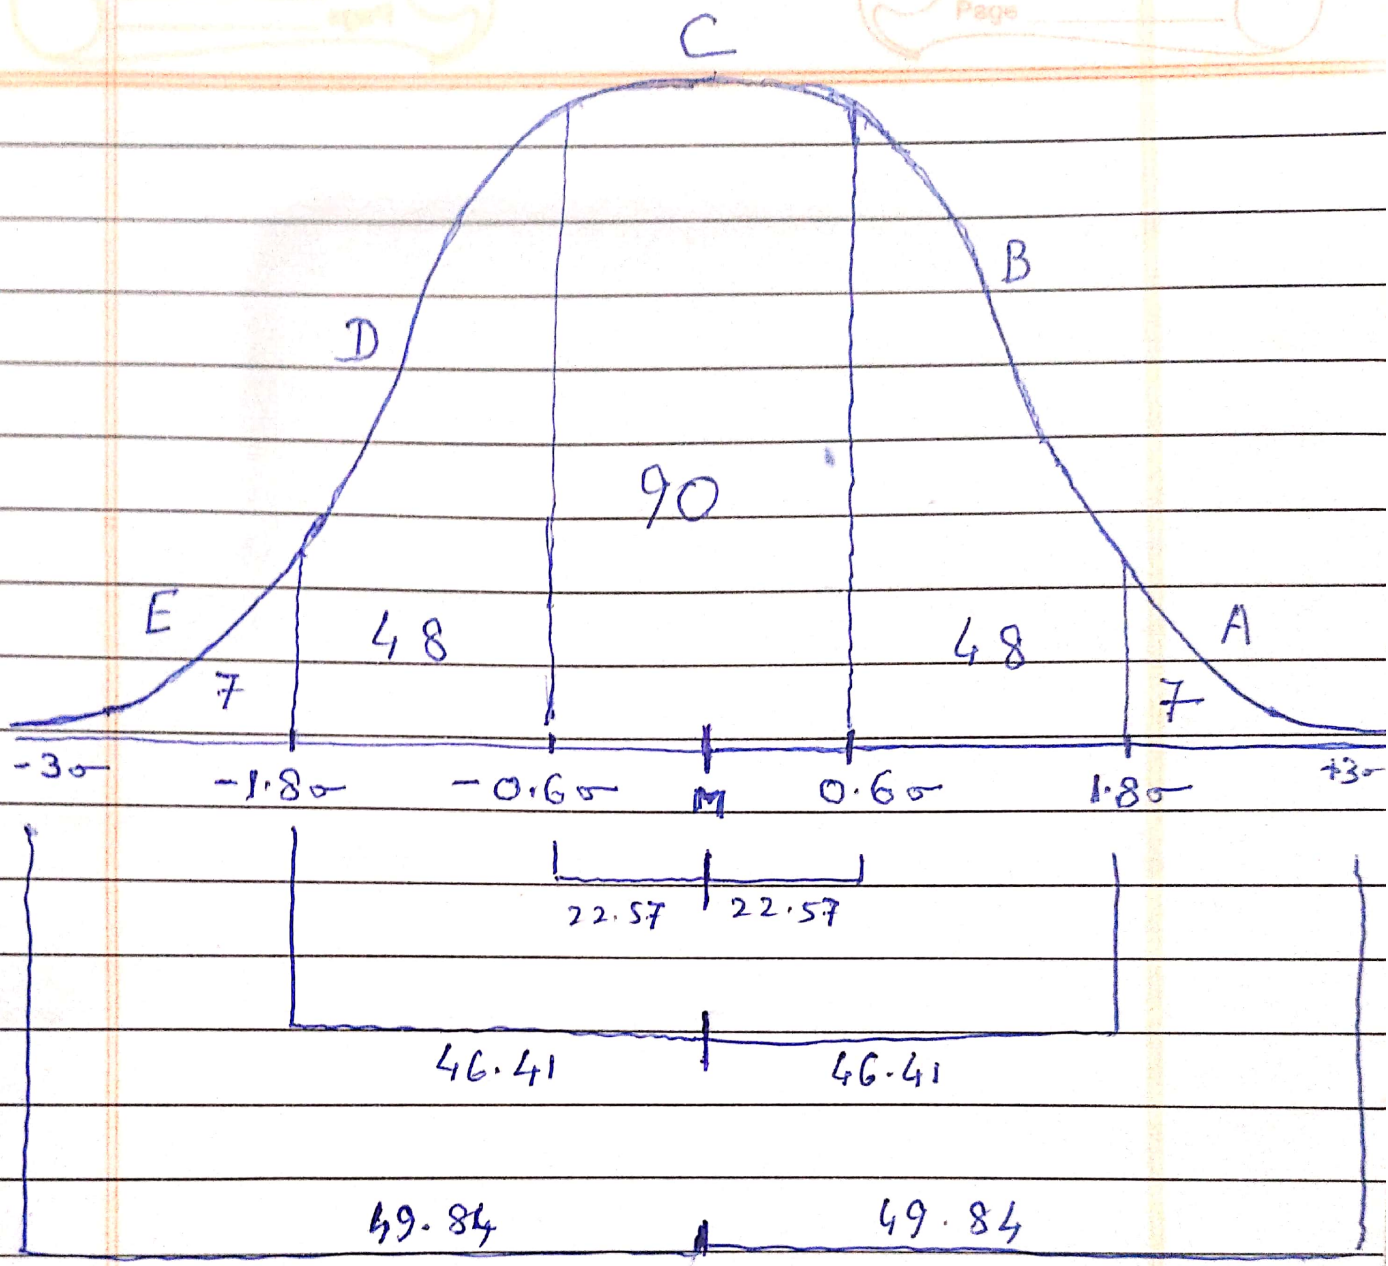 Page
C
B
D
90
E
48
48
A
7
7
-3σ -1.8σ -0.6σ M 0.6σ 1.8σ +3σ
22.57 22.57
46.41 46.41
49.84 49.84